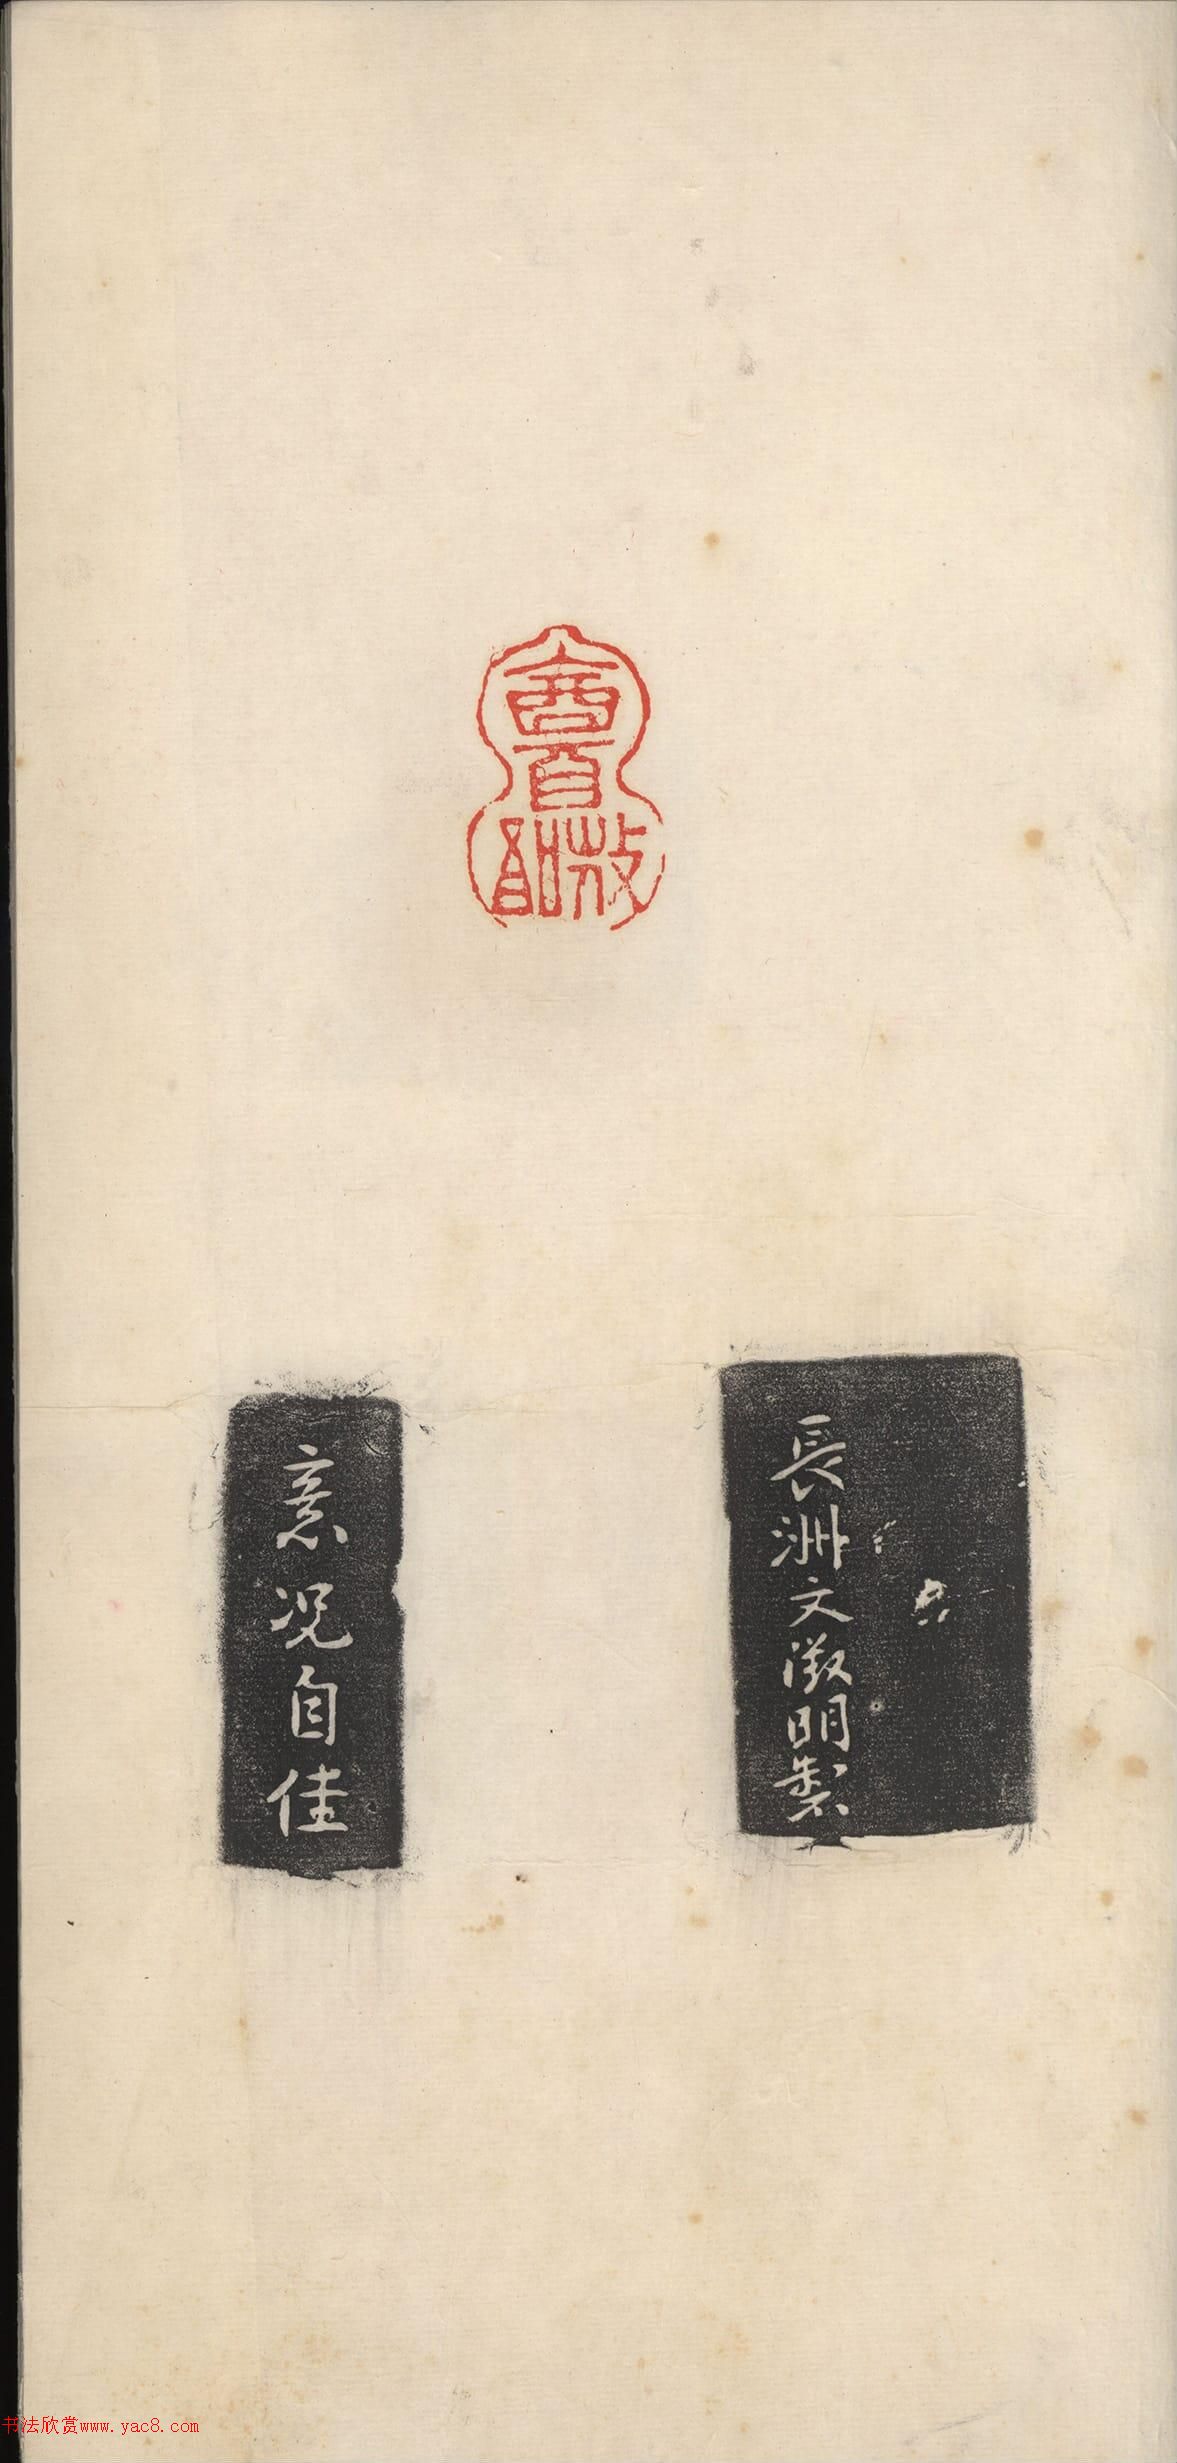 長洲文徵明製
意况自佳
书法欣赏www.yac8.com